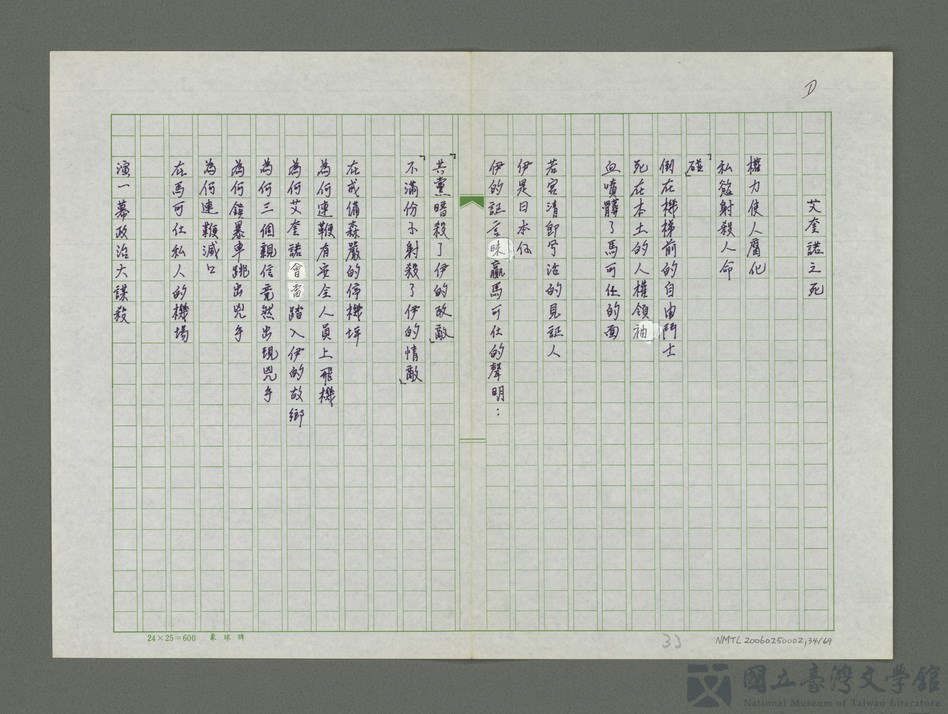 艾奎諾之死
權力使人腐化
私慾射殺人命
「碰」
倒在機梯前的自由鬥士
死在本土的人權領袖
血噴髒了馬可仕的面
若宮清卽兮活的見証人
伊是日本仔
伊的証言昧贏馬可仕的聲明：
「共黨暗殺了伊的政敵」
「不滿份子射殺了伊的情敵」
在戒備森嚴的停機坪
為何連鞭有安全人員上飛機
為何艾奎諾會當踏入伊的故鄉
為何三個親信竟然出現兇手
為何鎮暴車跳出兇手
為何連鞭滅口
在馬可仕私人的機場
演一幕政治大謀殺
24×25=600
33
NMTL20060250002,34/69
國立臺灣文學館
National Museum of Taiwan Literature